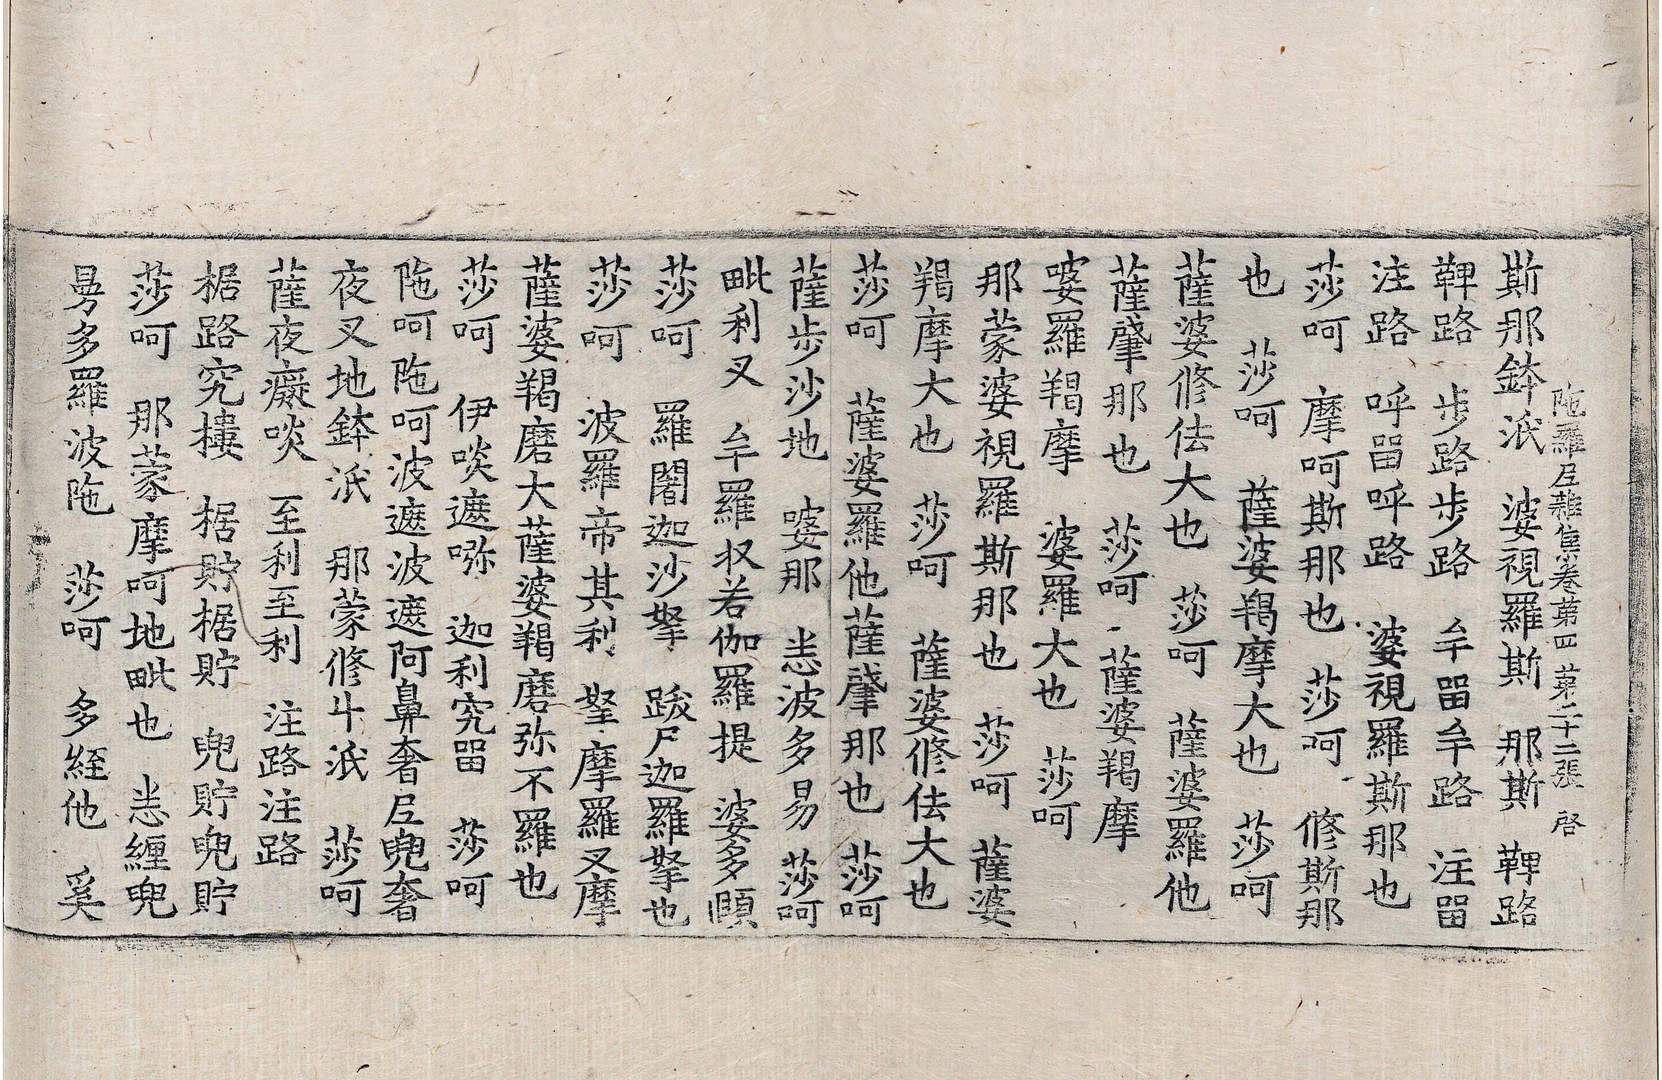 陁羅𡰱雜集卷第四 第二十二張 啓
斯那鉢泜 婆視羅斯 那斯 鞞路
鞞路 步路步路 牟留牟路 注留
注路 呼留呼路 婆視羅斯那也
莎呵 摩呵斯那也 莎呵 修斯那
也 莎呵 薩婆羯摩大也 莎呵
薩婆修佉大也 莎呵 薩婆羅他
薩肇那也 莎呵 薩婆羯摩
婆羅羯摩 婆羅大也 莎呵
那蒙婆視羅斯那也 莎呵 薩婆
羯摩大也 莎呵 薩婆修佉大也
莎呵 薩婆羅他薩肇那也 莎呵
薩步沙地 婆那 恙波多易 莎呵
毗利叉 牟羅杈若伽羅提 婆多頤
莎呵 羅闍迦沙拏 跋尸迦羅拏也
莎呵 波羅帝其利 拏摩羅叉摩
薩婆羯磨大薩婆羯磨弥不羅也
莎呵 伊啖遮㖇 迦利究留 莎呵
陁呵陁呵波遮波遮阿鼻奢𡰱兜奢
夜叉地鉢泜 那蒙修斗泜 莎呵
薩夜癡啖 至利至利 注路注路
椐路究摟 椐貯椐貯 兜貯兜貯
莎呵 那蒙摩呵地毗也 恙纏兜
多羅波陁 莎呵 多絰他 奚